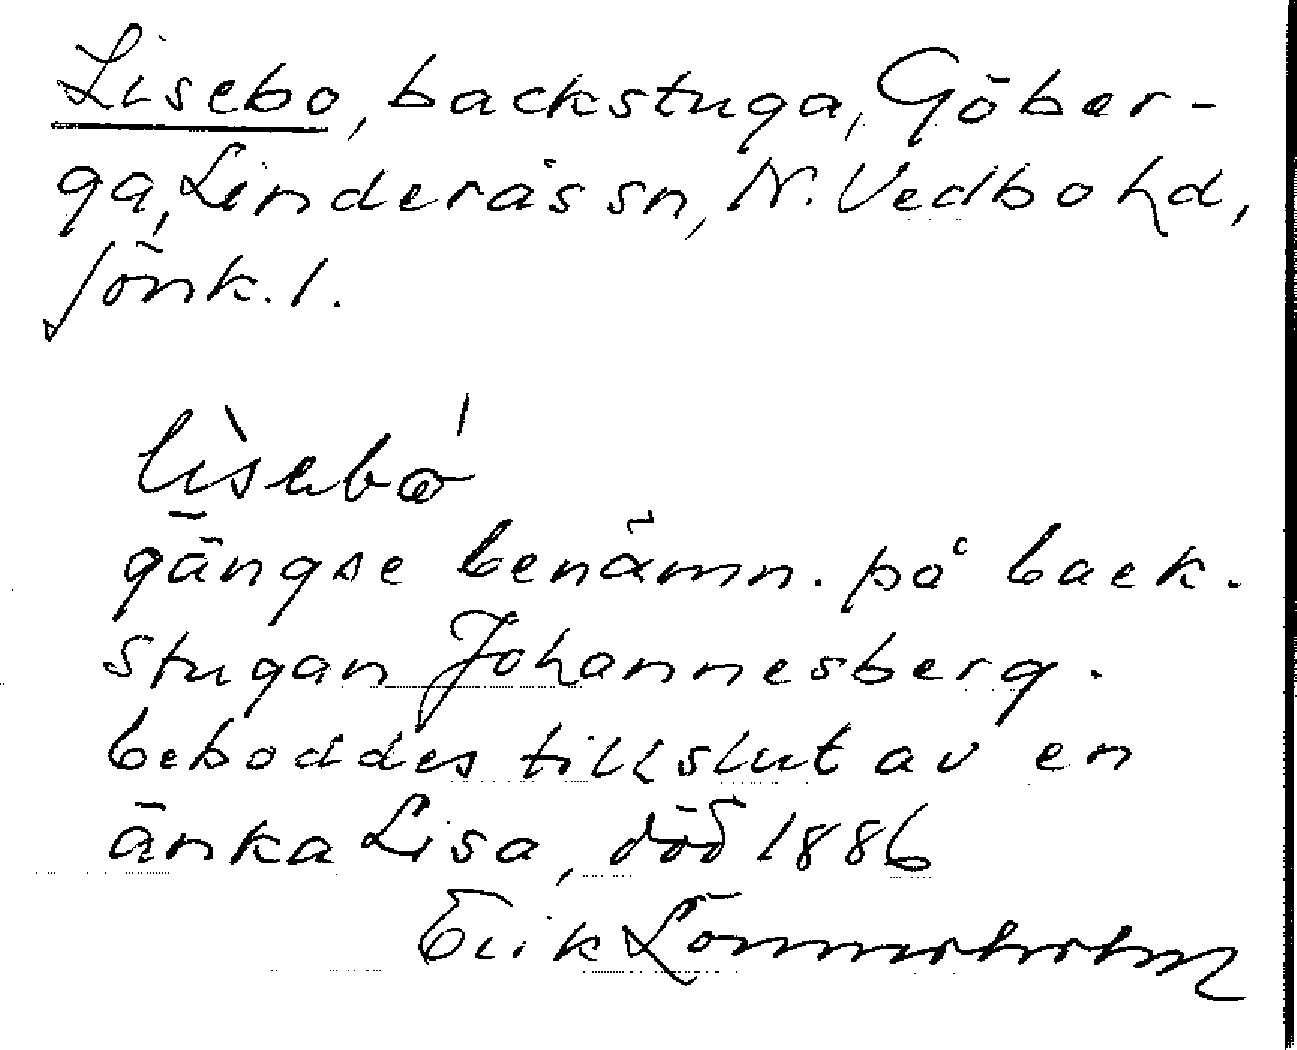 Lisebo, backstuga, Göber-
ga, Linderås sn, N. Vedbo hd,
Jönk. l.
gängse benämn. på back-
stugan Johannesberg.
beboddes till slut av en
änka Lisa, död 1886
Erik